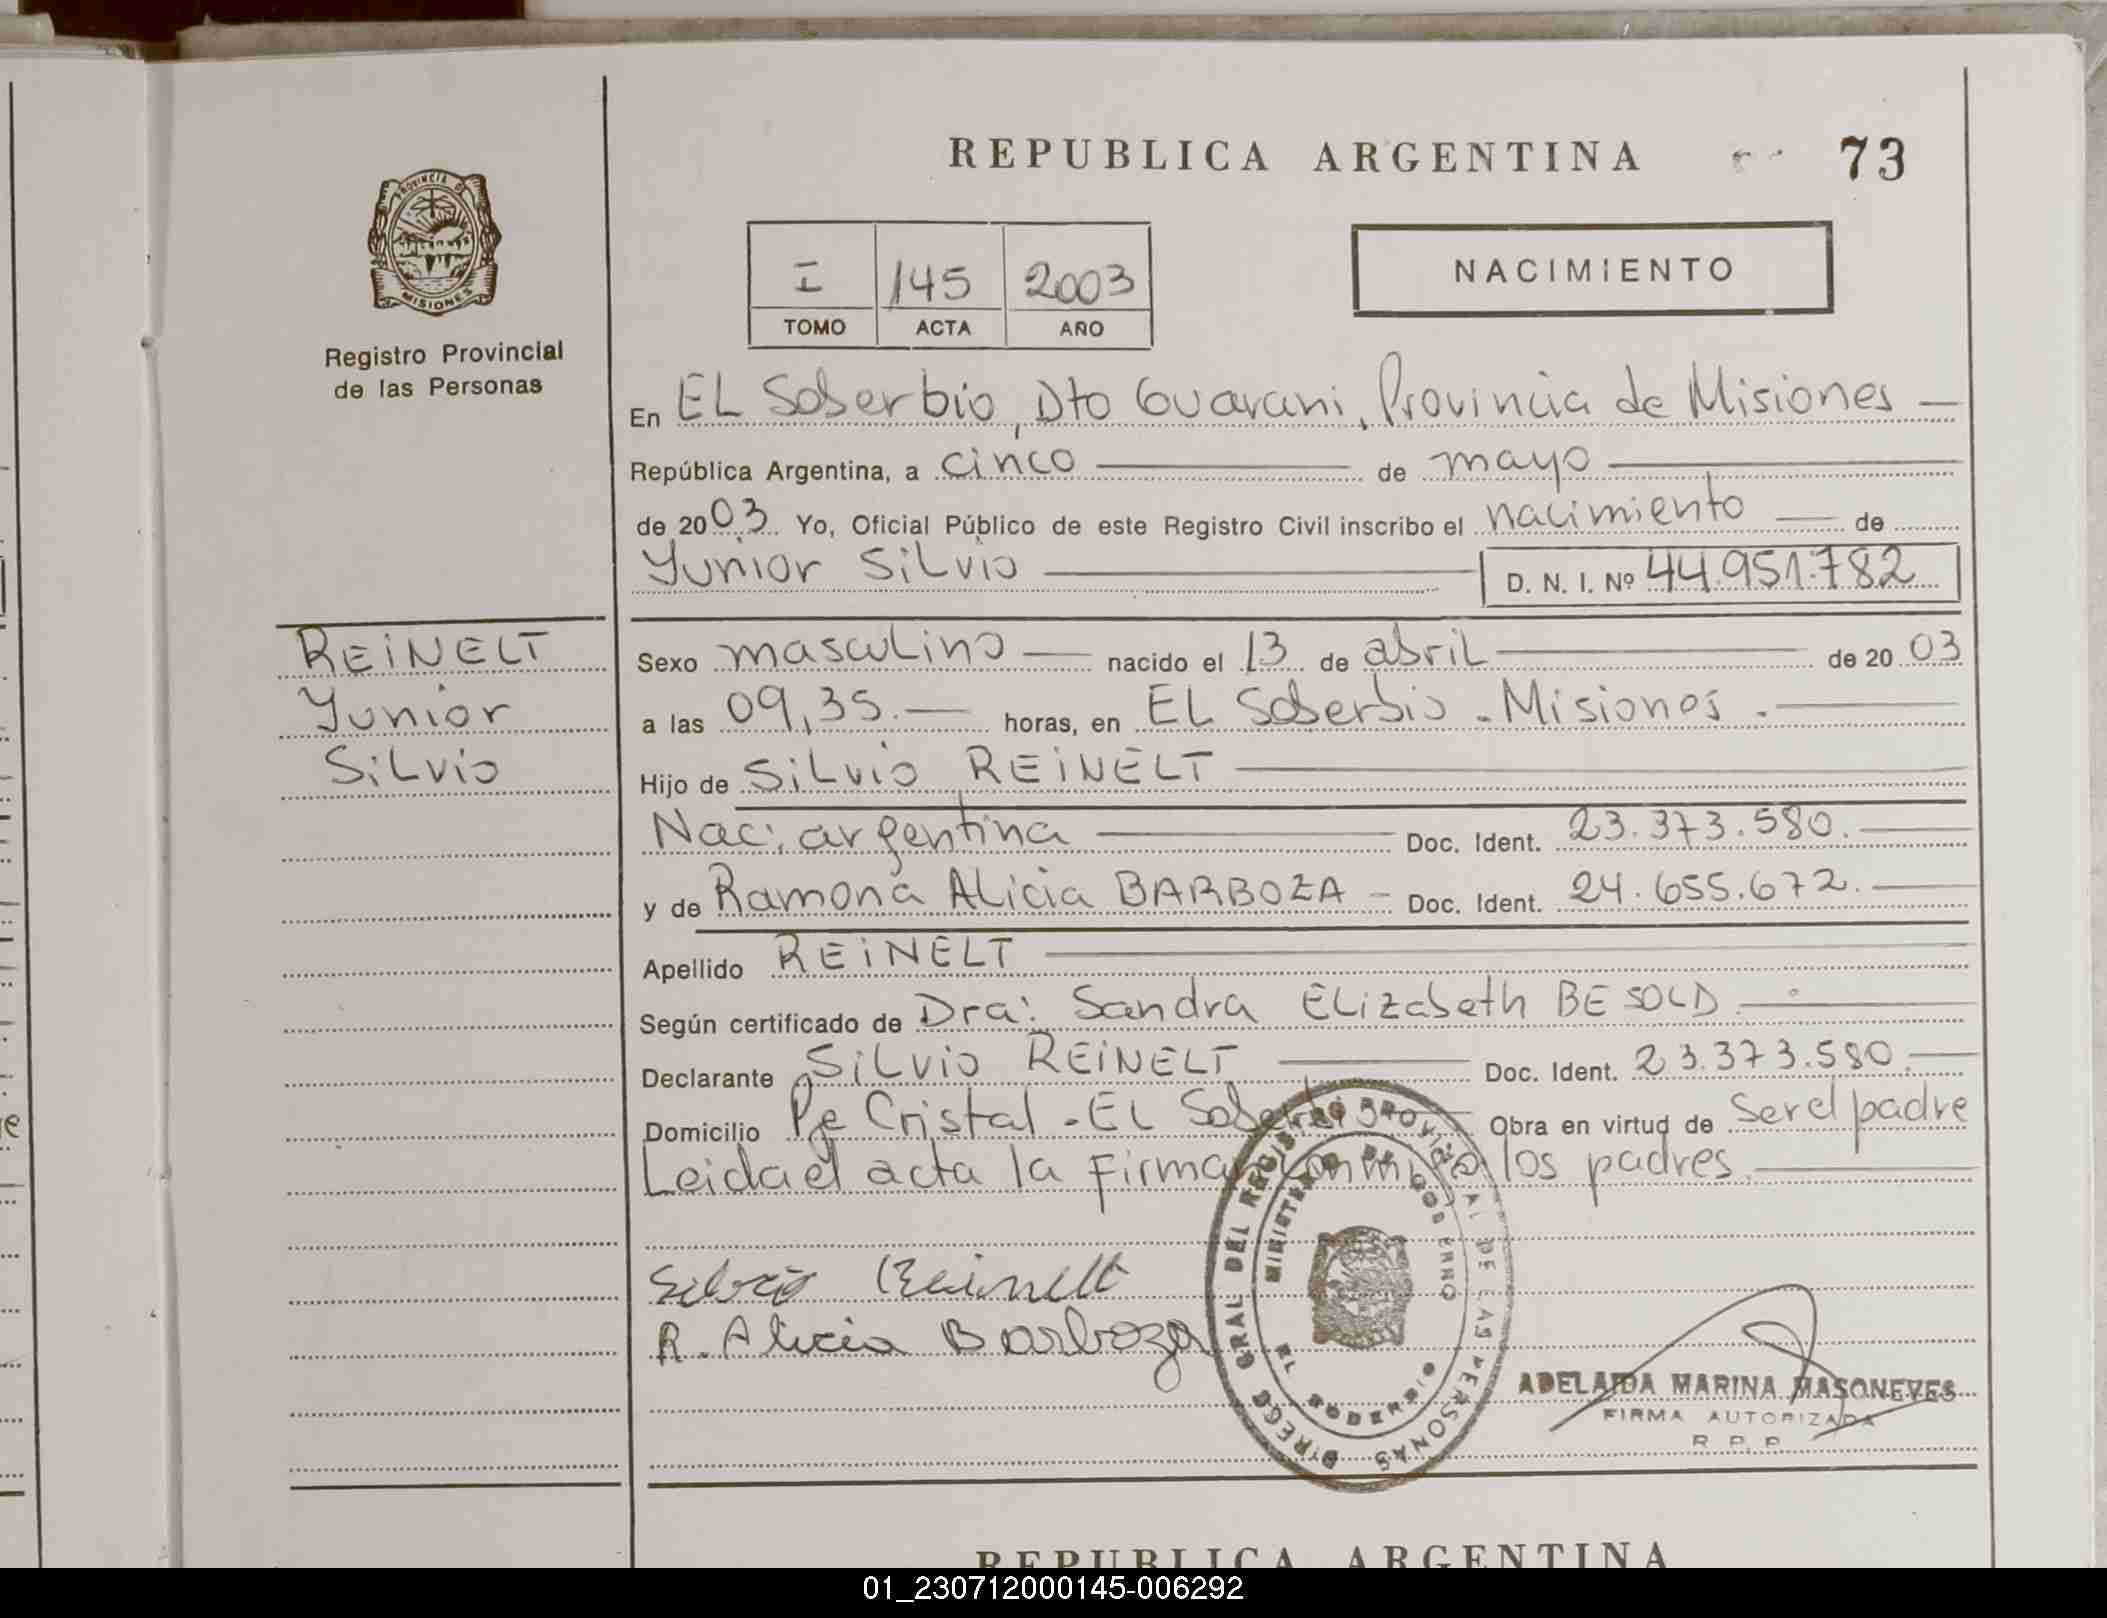 REPUBLICA ARGENTINA 73
PROVINCIA DE
MISIONES
Registro Provincial
de las Personas
I 145 2003
TOMO ACTA AÑO
NACIMIENTO
En EL Soberbio, Dto Guarani, Provincia de Misiones
República Argentina, a cinco de mayo
de 2003 Yo, Oficial Público de este Registro Civil inscribo el nacimiento de
Yunior Silvio D. N. I. Nº 44.951.782
REINELT
Yunior
Silvio
Sexo masculino nacido el 13 de abril de 2003
a las 09,35.- horas, en EL Soberbio - Misiones.-
Hijo de Silvio REINELT
Nac: argentina Doc. Ident. 23.373.580.
y de Ramona Alicia BARBOZA - Doc. Ident. 24.655.672.
Apellido REINELT
Según certificado de Dra: Sandra Elizabeth BESOLD
Declarante Silvio REINELT Doc. Ident. 23.373.580.
Domicilio Pje Cristal - EL Soberbio Obra en virtud de ser el padre
Leida el acta la firman conmigo los padres.
Silvio Reinelt
R. Alicia Barboza
DIREC. GRAL DEL REGISTRO PROVINCIAL DE LAS PERSONAS
MINISTERIO DE GOBIERNO
EL SOBERBIO
ADELAIDA MARINA MASONEVES
FIRMA AUTORIZADA
R. P. P.
REPUBLICA ARGENTINA
01_230712000145-006292